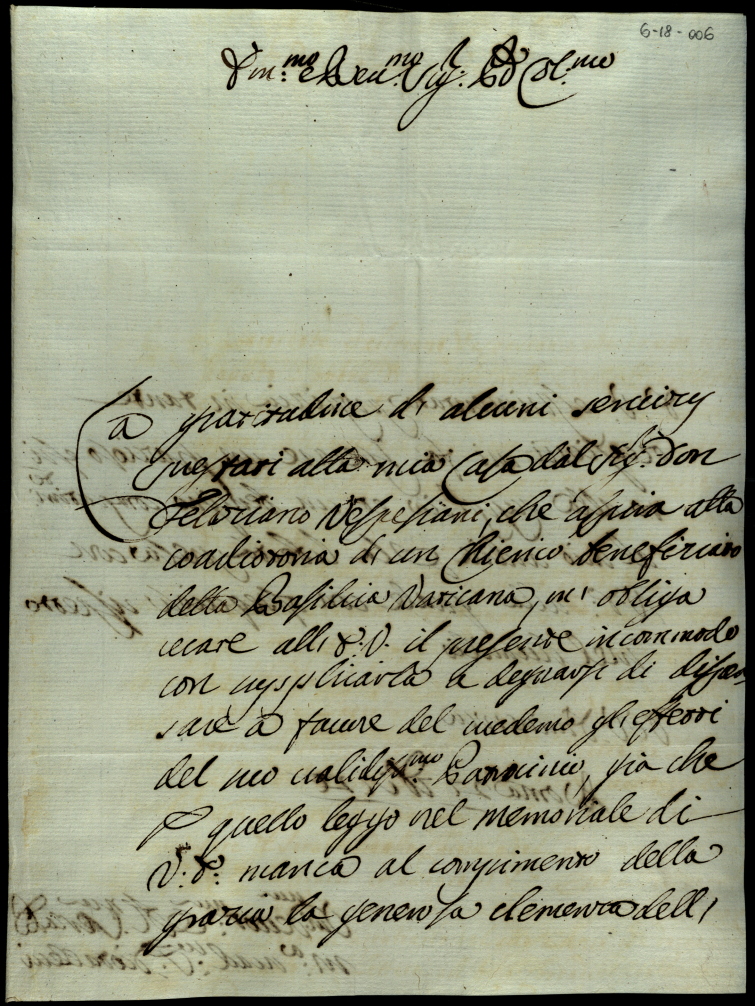 6-18-006
Em.mo e Reu.mo Sig.r P̄ro Col.mo
La gratitudine di alcuni seruizij
prestati alla mia Casa dal Sig.r Don
Feliciano Vespesiani, che aspira alla
coadiutoria di un Chierico beneficiato
della Basilica Vaticana, mi obliga
recare all'E.V. il presente incommodo
con supplicarla à degnarsi di dispen
sare à fauore del medemo gl'effetti
del suo ualidiss.mo Patrocinio, già che
p quello leggo nel memoriale di
V.E. manca al compimento della
grazia la generosa clemenza dell'